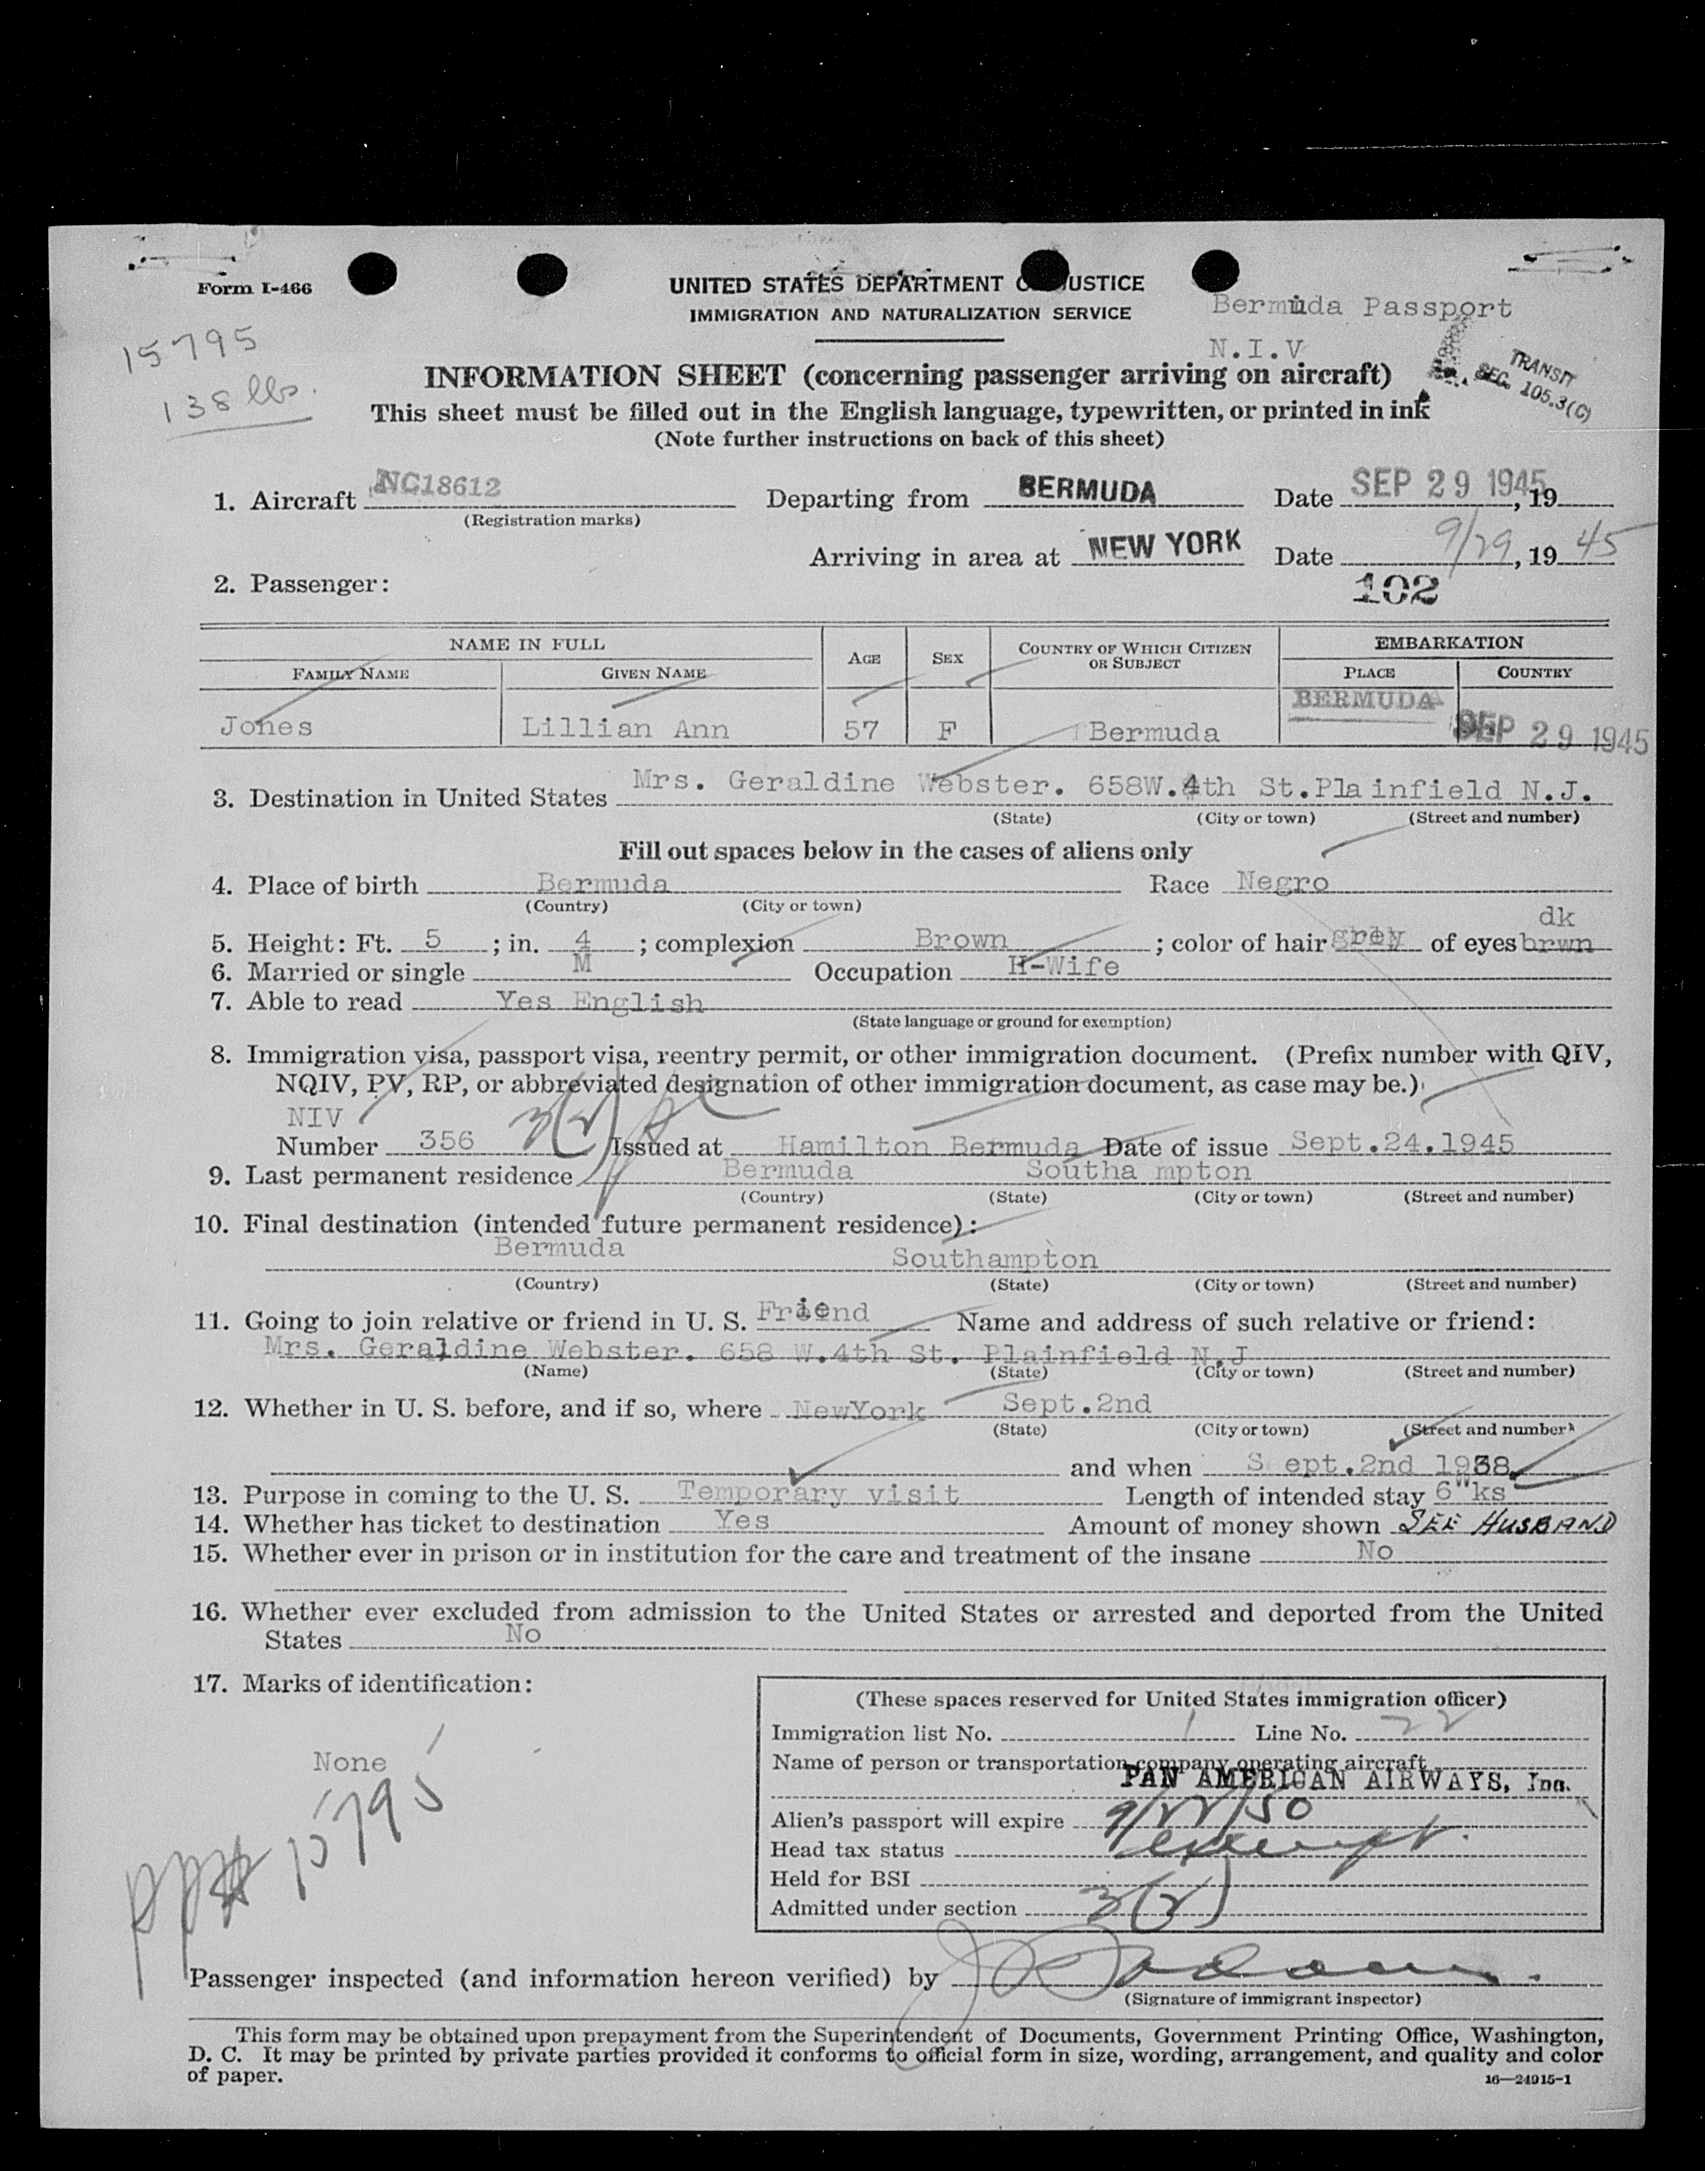 Form I-466
UNITED STATES DEPARTMENT OF JUSTICE
IMMIGRATION AND NATURALIZATION SERVICE
Bermuda Passport
N.I.V
15795
138 lbs.
TRANSIT
SEC. 105.3(C)
INFORMATION SHEET (concerning passenger arriving on aircraft)
This sheet must be filled out in the English language, typewritten, or printed in ink
(Note further instructions on back of this sheet)
1. Aircraft NC18612 Departing from BERMUDA Date SEP 29 1945, 19
(Registration marks)
Arriving in area at NEW YORK Date 9/29, 19 45
2. Passenger: 102
NAME IN FULL AGE SEX COUNTRY OF WHICH CITIZEN OR SUBJECT EMBARKATION
FAMILY NAME GIVEN NAME PLACE COUNTRY
Jones Lillian Ann 57 F Bermuda BERMUDA SEP 29 1945
3. Destination in United States Mrs. Geraldine Webster. 658W.4th St.Plainfield N.J.
(State) (City or town) (Street and number)
Fill out spaces below in the cases of aliens only
4. Place of birth Bermuda Race Negro
(Country) (City or town)
5. Height: Ft. 5 ; in. 4 ; complexion Brown ; color of hair grey of eyes dk brwn
6. Married or single M Occupation H-Wife
7. Able to read Yes English
(State language or ground for exemption)
8. Immigration visa, passport visa, reentry permit, or other immigration document. (Prefix number with QIV,
NQIV, PV, RP, or abbreviated designation of other immigration document, as case may be.)
NIV 3(2)
Number 356 Issued at Hamilton Bermuda Date of issue Sept.24.1945
9. Last permanent residence Bermuda Southa mpton
(Country) (State) (City or town) (Street and number)
10. Final destination (intended future permanent residence):
Bermuda Southampton
(Country) (State) (City or town) (Street and number)
11. Going to join relative or friend in U. S. Friend Name and address of such relative or friend:
Mrs. Geraldine Webster. 658 W.4th St. Plainfield N.J
(Name) (State) (City or town) (Street and number)
12. Whether in U. S. before, and if so, where NewYork Sept.2nd
(State) (City or town) (Street and number)
and when S ept.2nd 1938
13. Purpose in coming to the U. S. Temporary visit Length of intended stay 6 wks
14. Whether has ticket to destination Yes Amount of money shown SEE HUSBAND
15. Whether ever in prison or in institution for the care and treatment of the insane No
16. Whether ever excluded from admission to the United States or arrested and deported from the United
States No
17. Marks of identification:
None
pp# 15795
(These spaces reserved for United States immigration officer)
Immigration list No. 1 Line No. 22
Name of person or transportation company operating aircraft
PAN AMERICAN AIRWAYS, Inc.
Alien's passport will expire 9/22/50
Head tax status exempt.
Held for BSI
Admitted under section 3(2)
Passenger inspected (and information hereon verified) by
(Signature of immigrant inspector)
This form may be obtained upon prepayment from the Superintendent of Documents, Government Printing Office, Washington,
D. C. It may be printed by private parties provided it conforms to official form in size, wording, arrangement, and quality and color
of paper.
16—24915-1